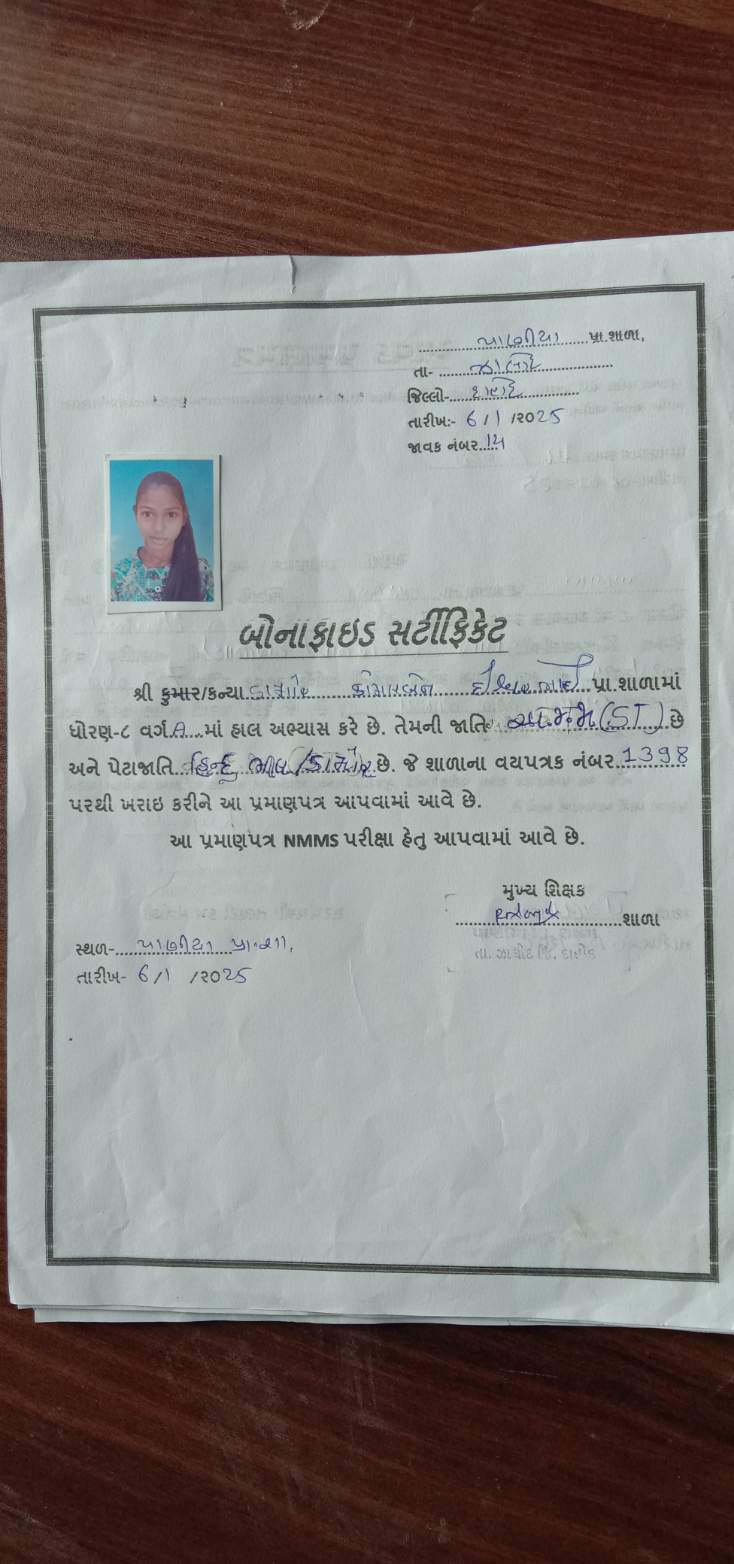 પાણીયા પ્રા.શાળા,
તા- ઝાલોદ
જિલ્લો- દાહોદ
તારીખ:- 6/1/2025
જાવક નંબર 14
બોનાફાઇડ સર્ટીફિકેટ
શ્રી કુમાર/કન્યા ડામોર કોમલબેન પ્રા.શાળામાં
ધોરણ-૮ વર્ગ A માં હાલ અભ્યાસ કરે છે. તેમની જાતિ (ST) છે
અને પેટાજાતિ હિન્દુ ભીલ/ડામોર છે. જે શાળાના વયપત્રક નંબર 1398
પરથી ખરાઇ કરીને આ પ્રમાણપત્ર આપવામાં આવે છે.
આ પ્રમાણપત્ર NMMS પરીક્ષા હેતુ આપવામાં આવે છે.
મુખ્ય શિક્ષક
શાળા
તા. ઝાલોદ જિ. દાહોદ
સ્થળ- પાણીયા પ્રા.શા,
તારીખ- 6/1/2025